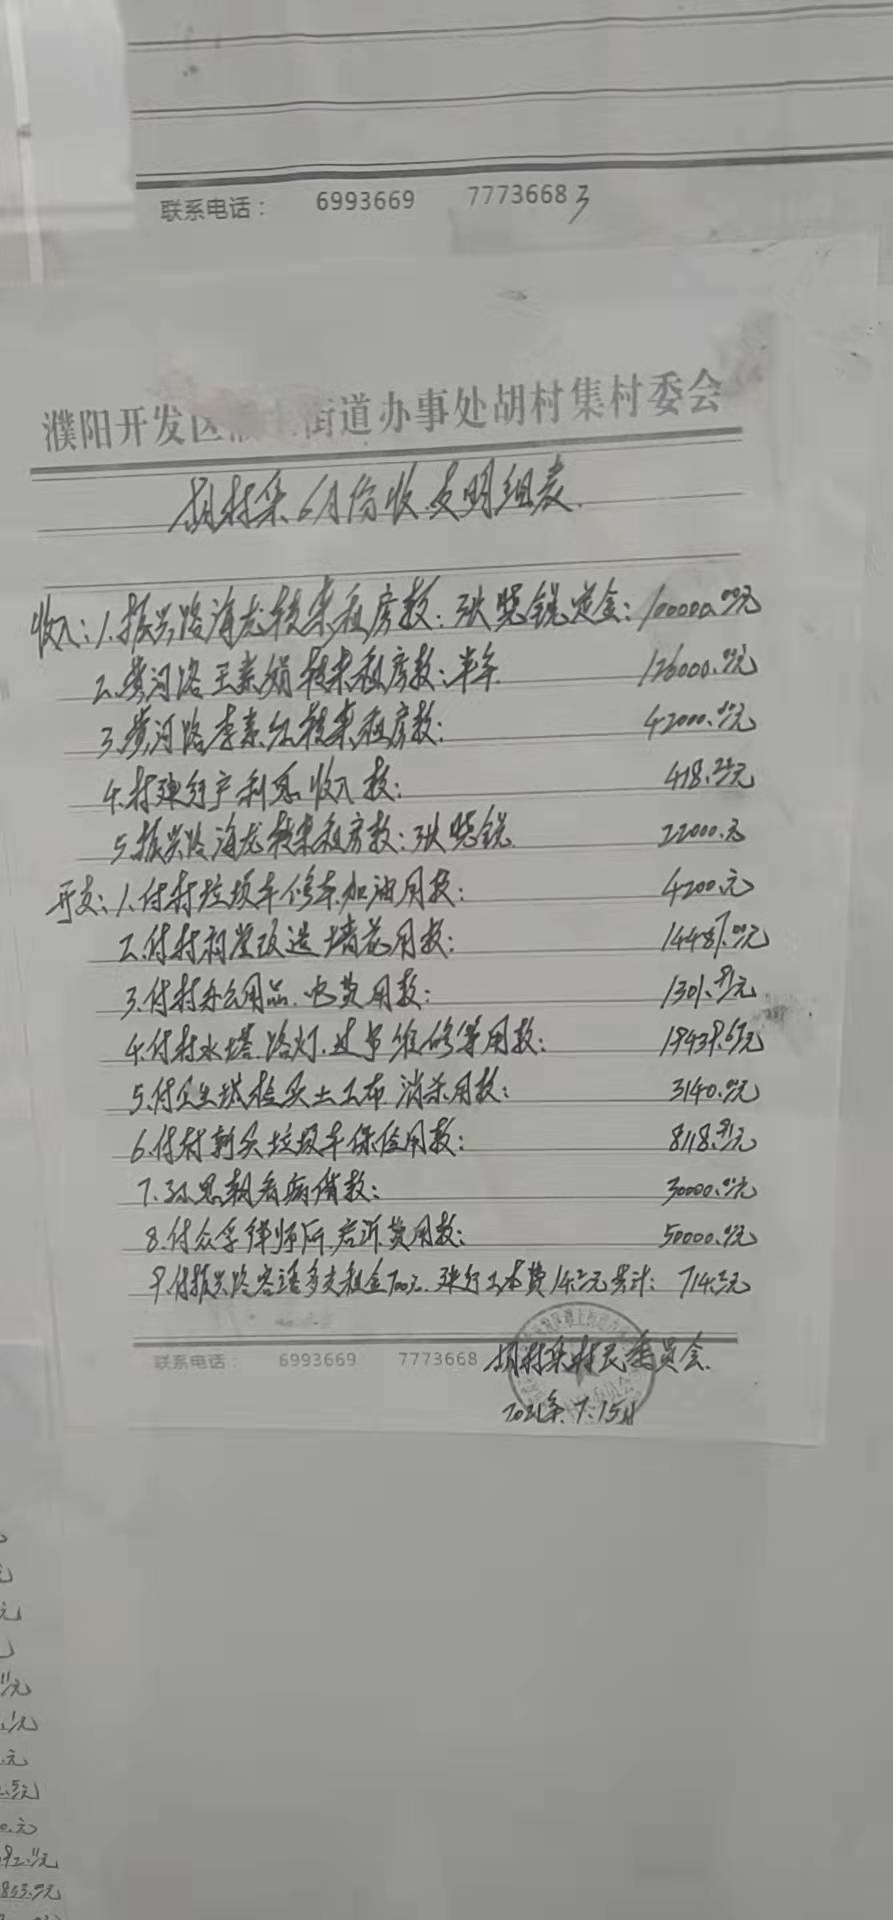 联系电话： 6993669 7773668 3
濮阳开发区濮上街道办事处胡村集村委会
胡村集6月份收支明细表
收入：1.振兴路海龙转来租房款：张晓锐定金：100000.00元
2.黄河路王素娟转来租房款：半年 126000.00元
3.黄河路李素红转来租房款： 42000.00元
4.村建行户利息收入款： 418.24元
5.振兴路海龙转来租房款：张晓锐 22000.元
开支：1.付村垃圾车修车加油用款： 4200.元
2.付村祠堂改造墙花用款： 14487.00元
3.付村办公用品.电费用款： 1301.91元
4.付村水塔.路灯.过节维修等用款： 19439.65元
5.付卫生城检买土工布.消杀用款： 3140.00元
6.付村新买垃圾车保险用款： 8118.91元
7.孙思朝看病借款： 30000.00元
8.付众孚律师所.启诉费用款： 50000.00元
9.付振兴路客语多支租金700元.建行工本费14.元共计： 714.元
联系电话： 6993669 7773668 胡村集村民委员会.
2021年.7.15日
元
元
元
元
元
元
元
元